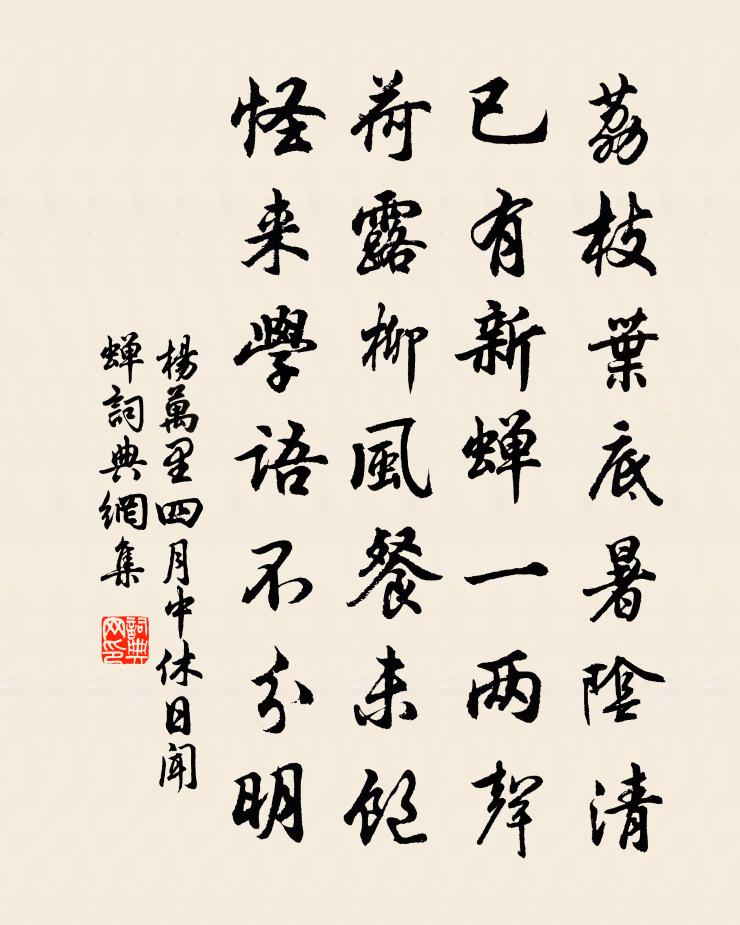 荔枝葉底暑陰清
已有新蝉一两聲
荷露柳風餐未飽
怪来學語不分明
楊萬里四月中休日闻
蝉詞典網集
詞典
网印